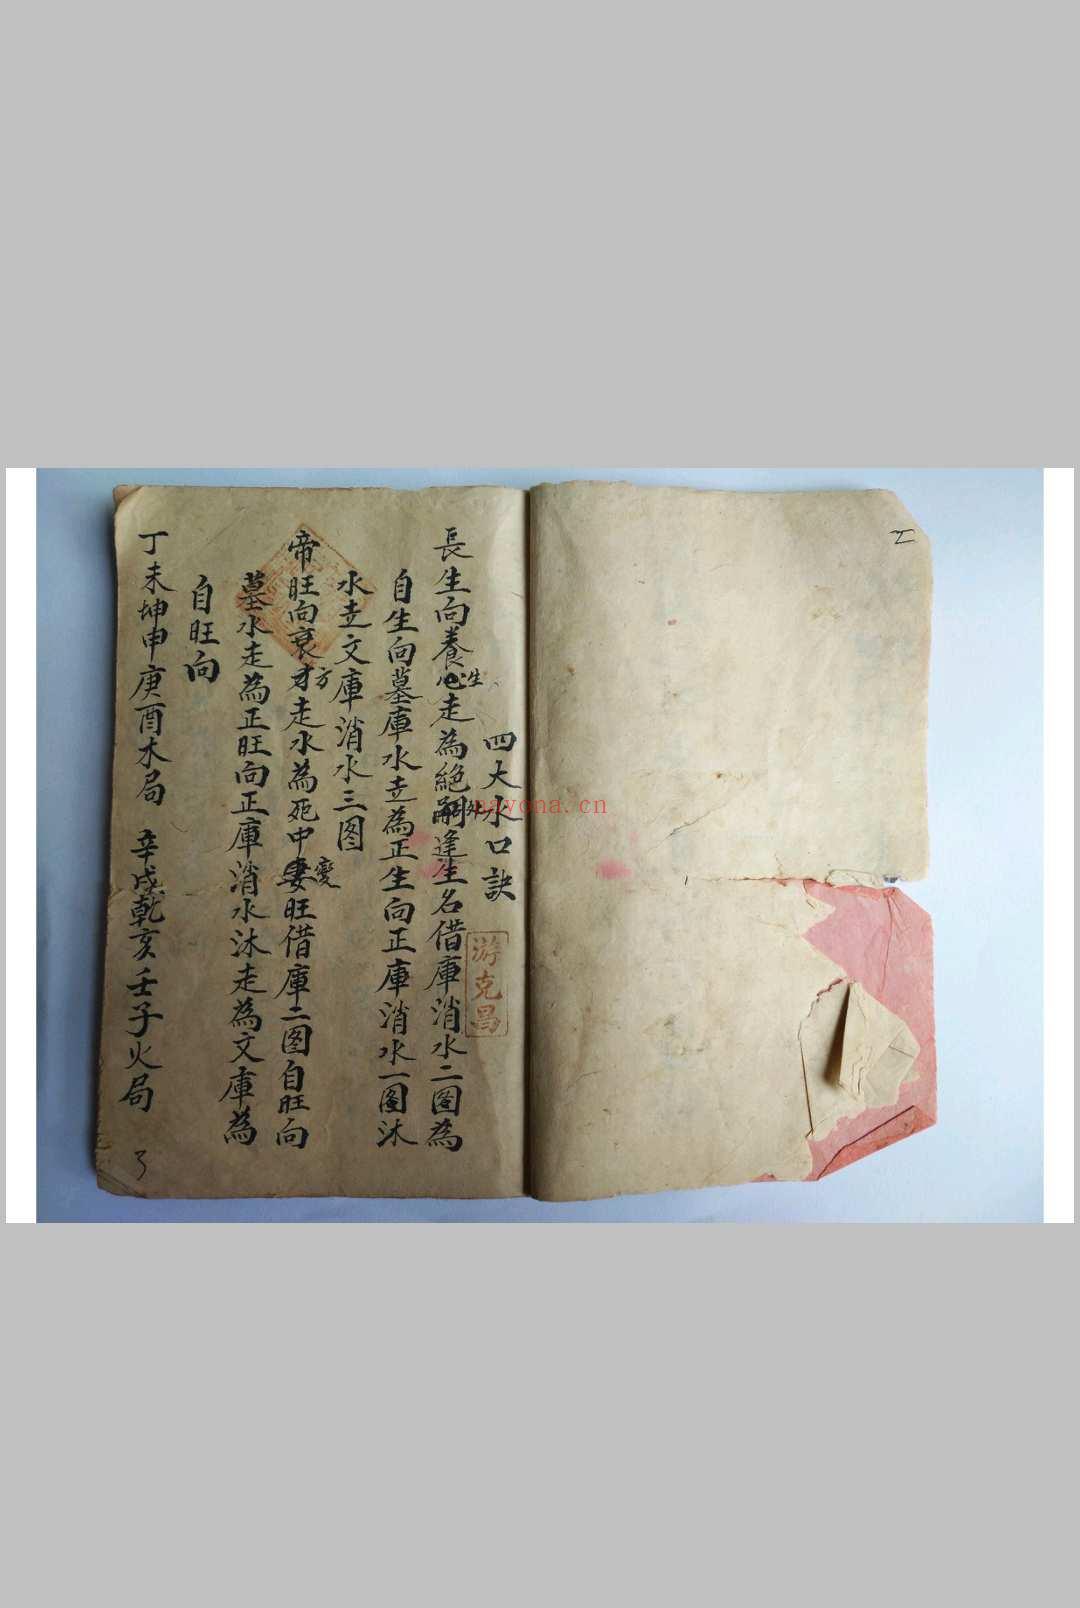 四大水口訣
游克昌
長生向養生走為絕處逢生名借庫消水二图為
自生向墓庫水走為正生向正庫消水一图沐
水走文庫消水三图
帝旺向衰方走水為死中變旺借庫二图自旺向
墓水走為正旺向正庫消水沐走為文庫為
自旺向
丁未坤申庚酉木局 辛戍乾亥壬子火局
nayona.cn